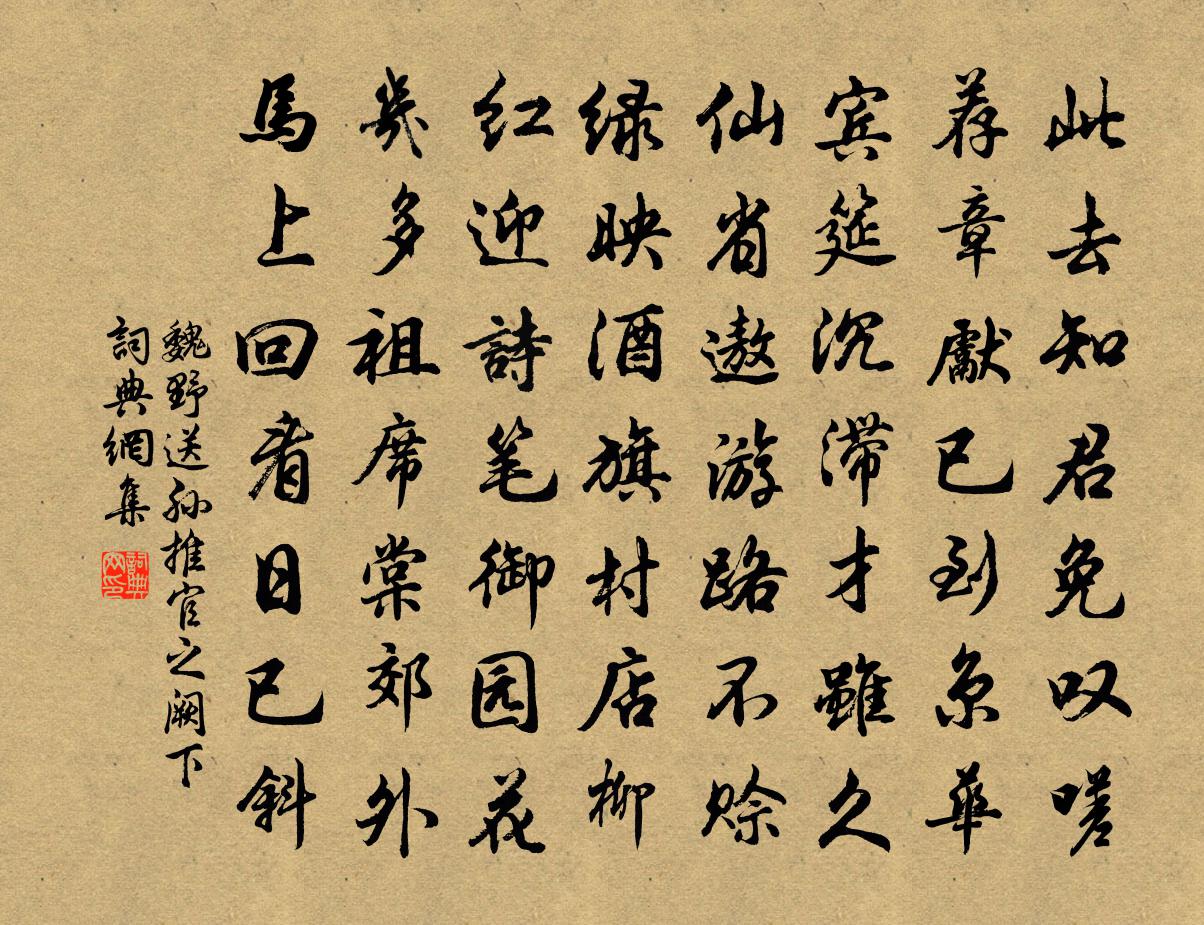 此去知君免叹嗟
荐章獻已到京華
宾筵沉滞才雖久
仙省遨游路不赊
绿映酒旗村店柳
红迎詩笔御园花
幾多祖席棠郊外
馬上回看日已斜
魏野送孙推官之阙下
詞典網集
詞典網印